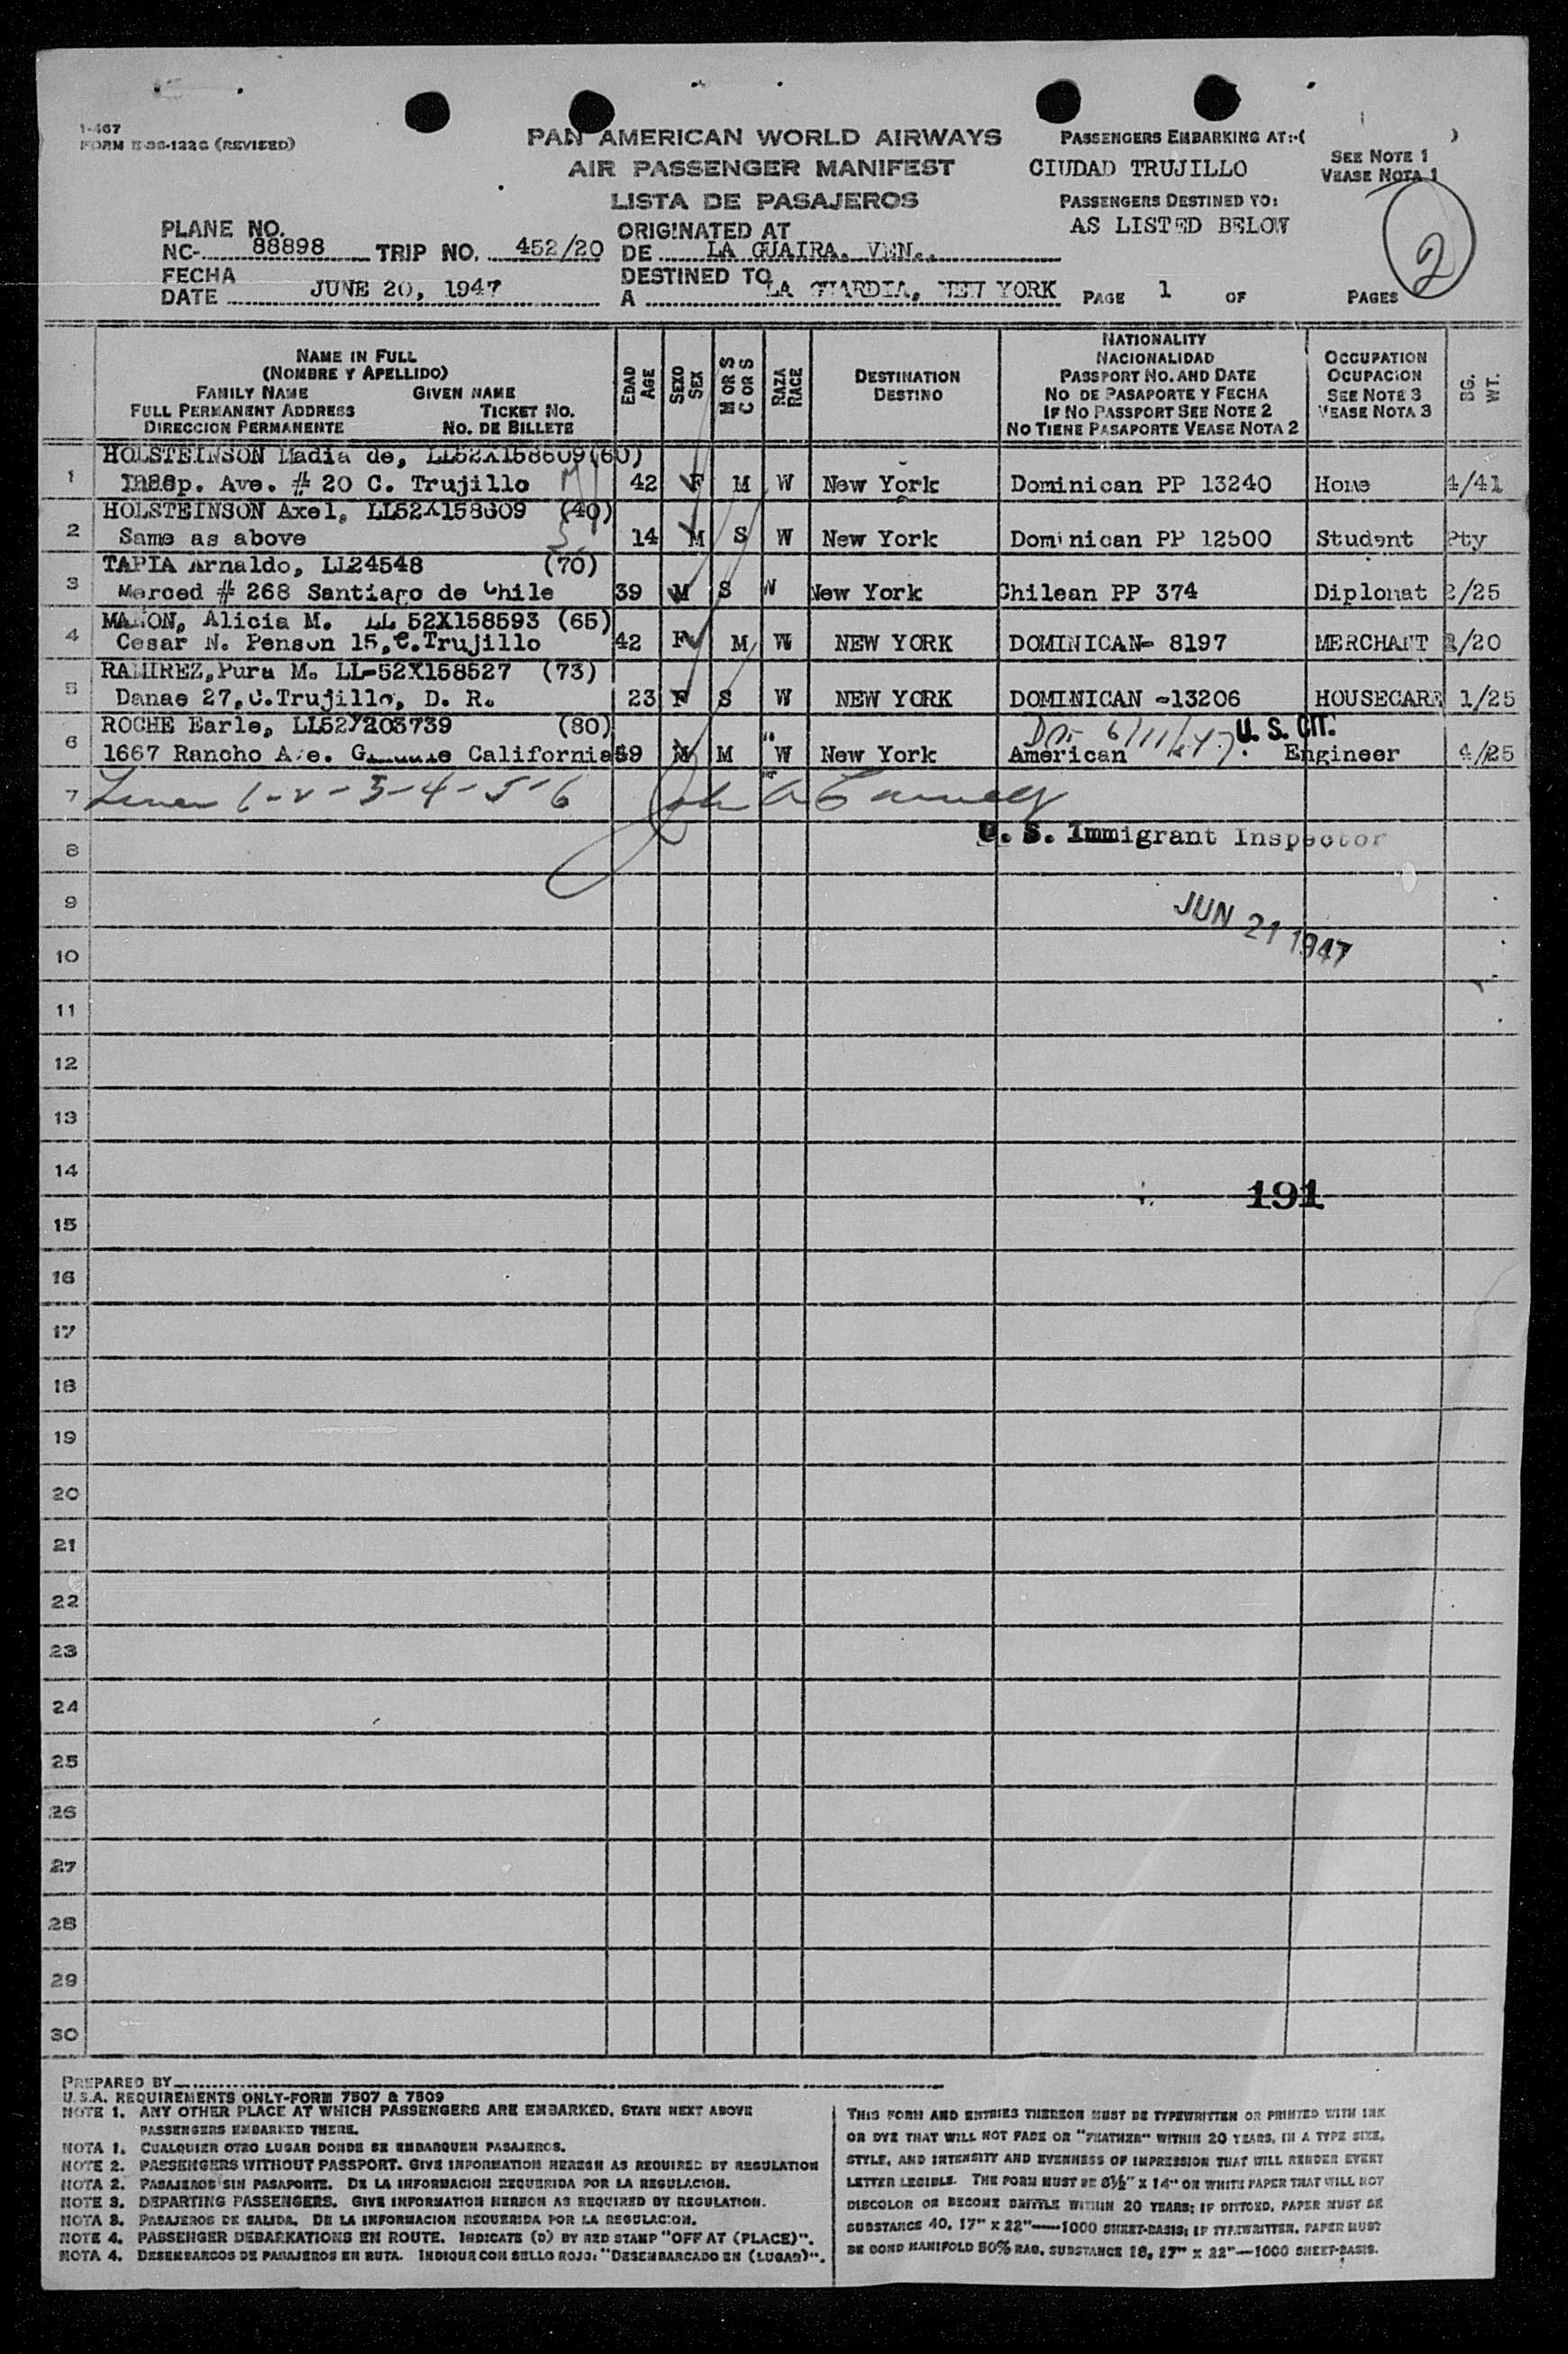 1-467
FORM E-96-122G (REVISED)
PAN AMERICAN WORLD AIRWAYS
AIR PASSENGER MANIFEST
LISTA DE PASAJEROS
PASSENGERS EMBARKING AT:-( )
CIUDAD TRUJILLO
SEE NOTE 1
VEASE NOTA 1
PASSENGERS DESTINED TO:
AS LISTED BELOW
2
PLANE NO.
NC- 88898 TRIP NO. 452/20
ORIGINATED AT
DE LA GUAIRA, VEN.
FECHA
DATE JUNE 20, 1947
DESTINED TO
A LA GUARDIA, NEW YORK
PAGE 1 OF PAGES
NAME IN FULL
(NOMBRE Y APELLIDO)
FAMILY NAME GIVEN NAME
FULL PERMANENT ADDRESS TICKET NO.
DIRECCION PERMANENTE NO. DE BILLETE
EDAD
AGE
SEXO
SEX
M OR S
C OR S
RAZA
RACE
DESTINATION
DESTINO
NATIONALITY
NACIONALIDAD
PASSPORT NO. AND DATE
NO DE PASAPORTE Y FECHA
IF NO PASSPORT SEE NOTE 2
NO TIENE PASAPORTE VEASE NOTA 2
OCCUPATION
OCUPACION
SEE NOTE 3
VEASE NOTA 3
BG.
WT.
HOLSTEINSON Madia de, LL52X158609(60)
1 Indep. Ave. # 20 C. Trujillo 42 F M W New York Dominican PP 13240 Home 4/41
HOLSTEINSON Axel, LL52X158609 (40)
2 Same as above 14 M S W New York Dominican PP 12500 Student Pty
TAPIA Arnaldo, LL24548 (70)
3 Merced # 268 Santiago de Chile 39 M S W New York Chilean PP 374 Diplomat 2/25
MAÑON, Alicia M. LL 52X158593 (65)
4 Cesar N. Penson 15, C.Trujillo 42 F M W NEW YORK DOMINICAN- 8197 MERCHANT 2/20
RAMIREZ,Pura M. LL-52X158527 (73)
5 Danae 27,C.Trujillo, D. R. 23 F S W NEW YORK DOMINICAN -13206 HOUSECARE 1/25
ROCHE Earle, LL52Y203739 (80)
6 1667 Rancho Ave. California 59 M M W New York American 6/11/47. U. S. CIT. Engineer 4/25
7 Lines 1-2-3-4-5-6 John
U. S. Immigrant Inspector
8
JUN 21 1947
9
10
11
12
13
14
191
15
16
17
18
19
20
21
22
23
24
25
26
27
28
29
30
PREPARED BY
U.S.A. REQUIREMENTS ONLY-FORM 7507 & 7509
NOTE 1. ANY OTHER PLACE AT WHICH PASSENGERS ARE EMBARKED, STATE NEXT ABOVE
PASSENGERS EMBARKED THERE.
NOTA 1. CUALQUIER OTRO LUGAR DONDE SE EMBARQUEN PASAJEROS.
NOTE 2. PASSENGERS WITHOUT PASSPORT. GIVE INFORMATION HEREON AS REQUIRED BY REGULATION
NOTA 2. PASAJEROS SIN PASAPORTE. DE LA INFORMACION REQUERIDA POR LA REGULACION.
NOTE 3. DEPARTING PASSENGERS. GIVE INFORMATION HEREON AS REQUIRED BY REGULATION.
NOTA 3. PASAJEROS DE SALIDA. DE LA INFORMACION REQUERIDA POR LA REGULACION.
NOTE 4. PASSENGER DEBARKATIONS EN ROUTE. INDICATE (D) BY RED STAMP "OFF AT (PLACE)".
NOTA 4. DESEMBARCOS DE PASAJEROS EN RUTA. INDIQUE CON SELLO ROJO: "DESEMBARCADO EN (LUGAR)".
THIS FORM AND ENTRIES THEREON MUST BE TYPEWRITTEN OR PRINTED WITH INK
OR DYE THAT WILL NOT FADE OR "FEATHER" WITHIN 20 YEARS, IN A TYPE SIZE,
STYLE, AND INTENSITY AND EVENNESS OF IMPRESSION THAT WILL RENDER EVERY
LETTER LEGIBLE. THE FORM MUST BE 8½" X 14" ON WHITE PAPER THAT WILL NOT
DISCOLOR OR BECOME BRITTLE WITHIN 20 YEARS; IF DITTOED, PAPER MUST BE
SUBSTANCE 40, 17" X 22"—1000 SHEET-BASIS; IF TYPEWRITTEN, PAPER MUST
BE BOND MANIFOLD 50% RAG, SUBSTANCE 18, 17" X 22"—1000 SHEET-BASIS.